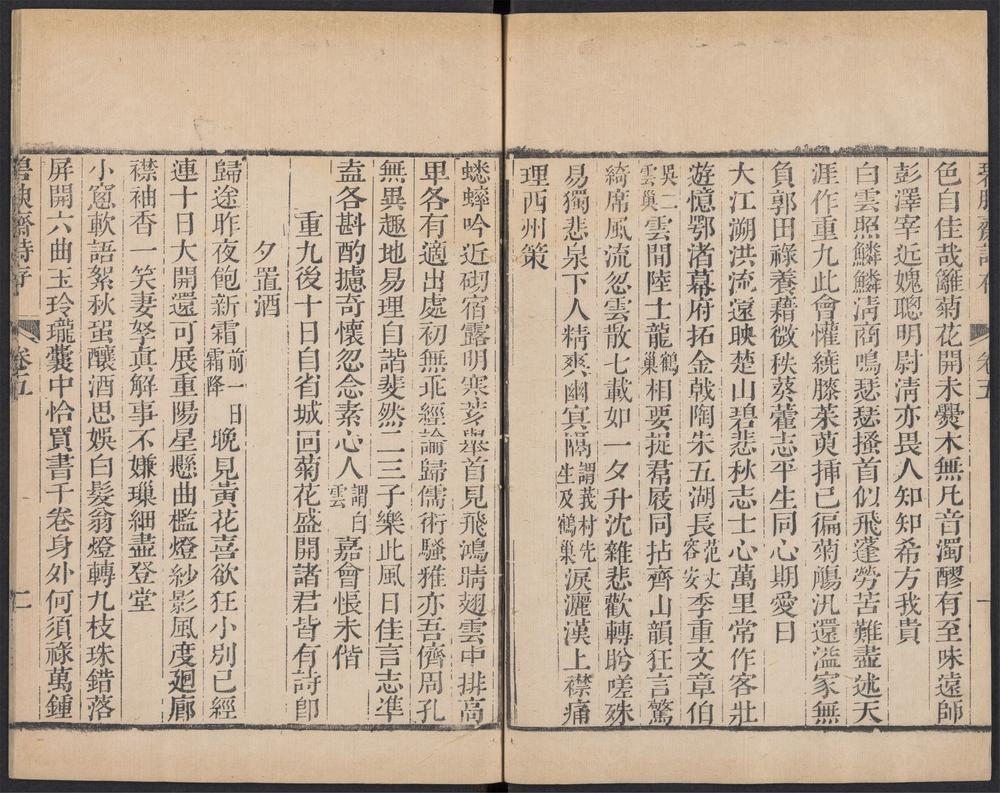 色自佳哉籬菊花開未爨木無凡音濁醪有至味遠師
彭澤宰近媿聰明尉清亦畏人知知希方我貴
白雲照鱗鱗清商鳴瑟瑟搔首似飛蓬勞苦難盡述天
涯作重九此會懽繞膝茱萸揷已徧菊觴氿還溢家無
負郭田祿養藉微秩葵藿志平生同心期愛日
大江溯洪流遠映楚山碧悲秋志士心萬里常作客壯
遊憶鄂渚幕府拓金戟陶朱五湖長范丈容安季重文章伯
吳二雲巢雲間陸士龍鶴巢相要捉羣屐同拈齊山韻狂言驚
綺席風流忽雲散七載如一夕升沈雜悲歡轉盼嗟殊
易獨悲泉下人精爽幽冥隔謂莪材先生及鶴巢淚灑漢上襟痛
理西州策
蟋蟀吟近砌宿露明寒莎舉首見飛鴻晴翅雲中排高
卑各有適出處初無乖經論歸儒術騷雅亦吾儕周孔
無異趣地易理自諧斐然二三子樂此風日佳言志準
盍各斟酌攄奇懷忽念素心人謂白雲嘉會悵未偕
重九後十日自省城回菊花盛開諸君皆有詩卽
夕置酒
歸途昨夜飽新霜前一日霜降晚見黃花喜欲狂小別已經
連十日大開還可展重陽星懸曲檻燈紗影風度廻廊
襟袖香一笑妻孥眞解事不嫌璅細盡登堂
小窻軟語絮秋蛩釀酒思娛白髮翁燈轉九枝珠錯落
屏開六曲玉玲瓏囊中恰買書千卷身外何須祿萬鍾
卷五
二